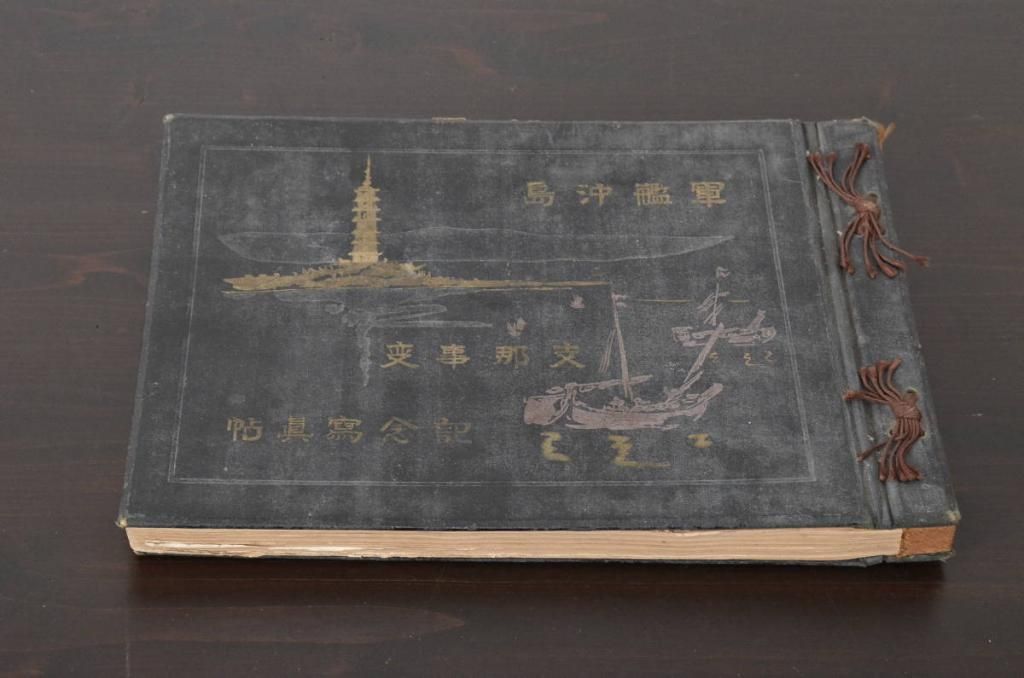 島沖艦軍
変事那支
帖眞寫念記